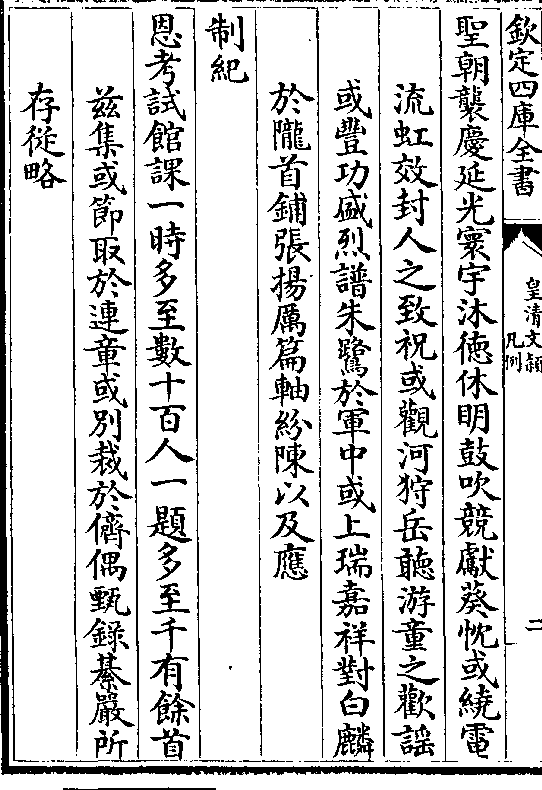 欽定四庫全書
皇清文穎
凡例
二
聖朝襲慶延光寰宇沐徳休明鼓吹競獻葵忱或繞電
流虹效封人之致祝或觀河狩岳聽游童之歡謡
或豐功盛烈譜朱鷺於軍中或上瑞嘉祥對白麟
於隴首鋪張揚厲篇軸紛陳以及應
制紀
恩考試館課一時多至數十百人一題多至千有餘首
兹集或節取於連章或別裁於儕偶甄錄綦嚴所
存從略